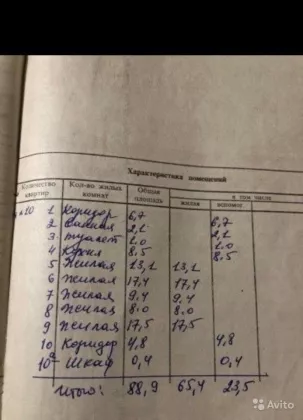 Характеристика помещений
Количество квартир Кол-во жилых комнат Общая площадь в том числе
жилая
1 Коридор 6,7 6,7
2 Ванная 2,1 2,1
3 Туалет 1.0 1.0
4 Кухня 8.5 8.5
5 Жилая 13,1 13,1
6 Жилая 17,4 17,4
7 Жилая 9.4 9.4
8 Жилая 8.0 8.0
9 Жилая 17,5 17,5
10 Коридор 4,8 4,8
10а Шкаф 0,4 0,4
Итого: 88,9 65,4 23,5
Avito